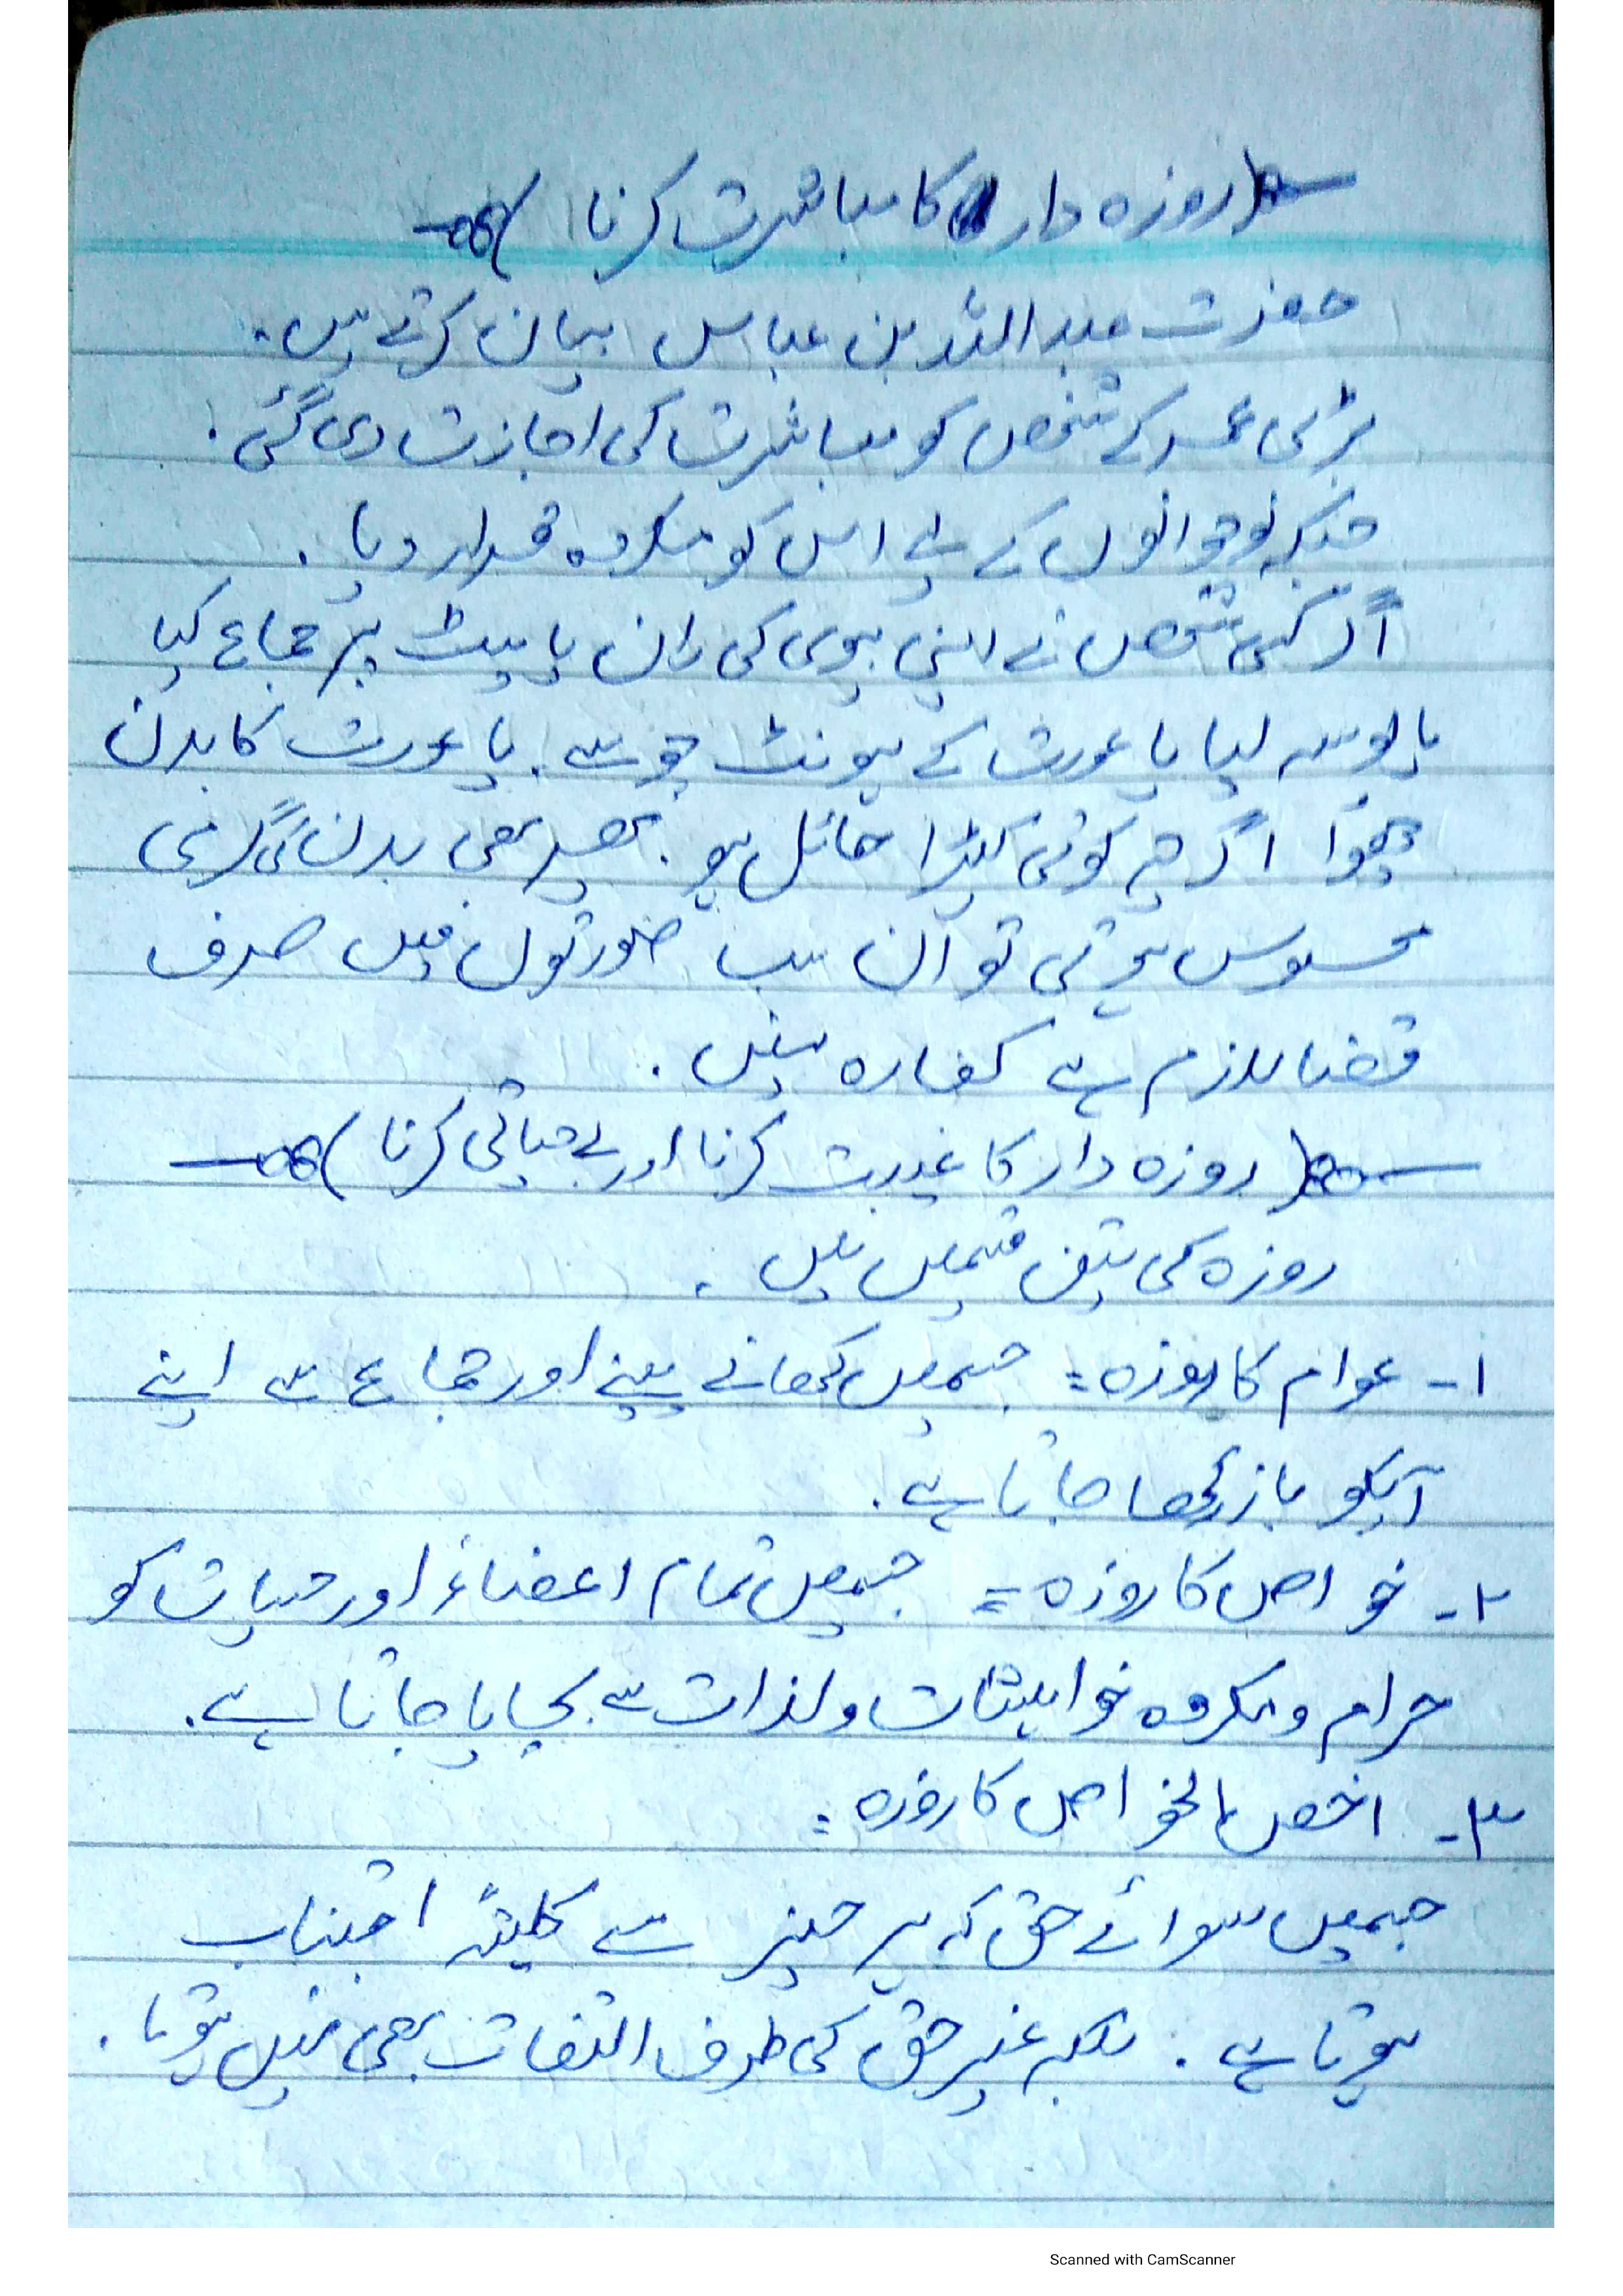 (روزہ دار کا مباشرت کرنا)
حضرت عبداللہ بن عباس بیان کرتے ہیں۔
بڑی عمر کے شخص کو مباشرت کی اجازت دی گئی۔
جبکہ نوجوانوں کے لیے اس کو مکروہ قرار دیا۔
اگر کسی شخص نے اپنی بیوی کی ران یا پیٹ پر جماع کیا
یا بوسہ لیا یا عورت کے ہونٹ چوسے۔ یا عورت کا بدن
چھوا اگرچہ کوئی کپڑا حائل ہو۔ پھر بھی بدن کی گرمی
محسوس ہوتی تو ان سب صورتوں میں صرف
قضا لازم ہے کفارہ نہیں۔
(روزہ دار کا غیبت کرنا اور بے حیائی کرنا)
روزہ کی تین قسمیں ہیں۔
۱- عوام کا روزہ: جسمیں کھانے پینے اور جماع سے اپنے
آپکو باز رکھا جاتا ہے۔
۲- خواص کا روزہ = جسمیں تمام اعضاء اور حسیات کو
حرام و مکروہ خواہشات و لذات سے بچایا جاتا ہے۔
۳- اخص الخواص کا روزہ:
جسمیں سوائے حق کہ ہر چیز سے کلیتہً اجتناب
ہوتا ہے۔ بلکہ غیر حق کی طرف التفات بھی نہیں ہوتا۔
Scanned with CamScanner